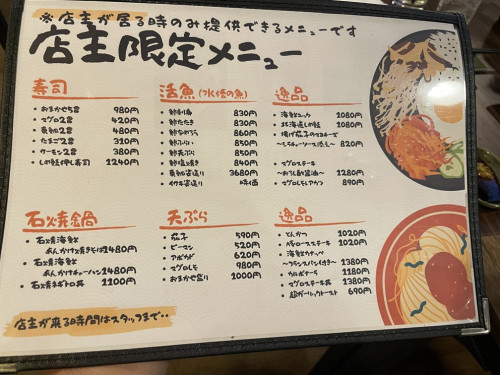 ※店主が居る時のみ提供できるメニューです
店主限定メニュー
寿司
・おまかせ5貫 980円
・マグロ2貫 420円
480円
・たまご2貫 310円
・サーモン2貫 380円
・しめ鯖押し寿司 1240円
活魚(水槽の魚)
830円
830円
860円
850円
850円
840円
3680円
時価
逸品
・海鮮ユッケ 1080円
・北海道しめ鯖 1080円
・揚げ茄子のマヨネーズ
〜しちゅーソース流し〜 820円
・マグロステーキ
〜おろし醤油〜 1280円
・マグロレモンペッパカツ 890円
石焼鍋
・石焼海鮮
あんかけ焼きそば 1480円
・石焼海鮮
あんかけチャーハン 1480円
・石焼ネギトロ丼 1100円
天ぷら
・茄子 590円
・ピーマン 520円
・アボカド 620円
・マグロレモン 980円
・おまかせ盛り 1000円
逸品
・とんかつ 1020円
・豚ロースステーキ 1020円
・海鮮カナッペ
〜フランスパン付き〜 1380円
・カルボナーラ 1180円
・マグロステーキ丼 1380円
・超ガーリックトースト 690円
店主が来る時間はスタッフまで・・